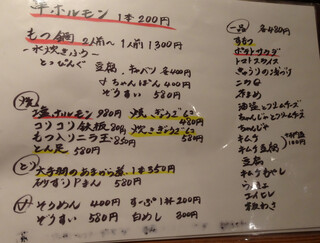 串ホルモン 1本200円
もつ鍋 2人前〜 1人前 1300円
水炊きふう
とっぴんぐ 豆腐、キャベツ 各400円
ちゃんぽん 400円
ぞうすい 580円
塩ホルモン 980円
焼ぎょうざ 480円
コリコリ鉄板 780円
炊きぎょうざ 580円
もつ入りニラ玉 850円
とん足 580円
大手間のあまから 1本350円
砂ずりPまん 580円
そうめん 400円 すーぷ1本200円
ぞうすい 580円 白めし 300円
一品 各480円
すもつ
ポテトサラダ
トマトスライス
きゅうりの浅づけ
ニラ
枝まめ
ちゃんじゃとクリームチーズ
ちゃんじゃ
キムチ
キムチ豆腐
豆腐
キムもやし
エイヒレ